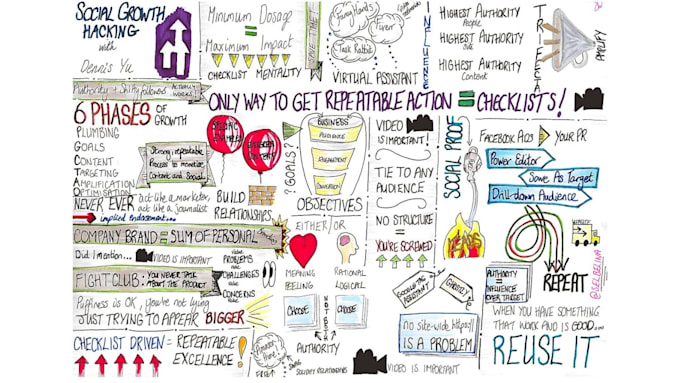 SOCIAL GROWTH
HACKING
with
Dennis Yu
Minimum Dosage
Maximum Impact
CHECKLIST MENTALITY
SAVE TIME!
FancyHands
Fiverr
Task Rabbit
VIRTUAL ASSISTANT
INFLUENCE
HIGHEST AUTHORITY
People
HIGHEST AUTHORITY
HIGHEST AUTHORITY
Content
TRIFECTA
AMPLIFY
Authority + Shitty followers
ACTUALLY
WORKS!
ONLY WAY TO GET REPEATABLE ACTION = CHECKLISTS!
6 PHASES OF GROWTH
PLUMBING
GOALS
CONTENT
TARGETING
AMPLIFICATION
OPTIMISATION
Strong, repeatable
Process to monetise
Content and Social
NEVER EVER act like a marketer,
act like a journalist
implied endorsement...
BUILD
RELATIONSHIPS
?GOALS?
BUSINESS
AUDIENCE
ENGAGEMENT
CONVERSION
OBJECTIVES
VIDEO
IS IMPORTANT!
TIE TO ANY
AUDIENCE
NO STRUCTURE
=
YOU'RE SCREWED
SOCIAL PROOF
FACEBOOK ADS
YOUR PR
Power Editor
Save As Target
Drill-down Audience
COMPANY BRAND = SUM OF PERSONAL
Did I mention... VIDEO IS IMPORTANT
PROBLEMS
CHALLENGES
CONCERNS
FIGHT CLUB - YOU NEVER TALK
ABOUT THE PRODUCT
Puffiness is OK, you're not lying
JUST TRYING TO APPEAR BIGGER
CHECKLIST DRIVEN = REPEATABLE
EXCELLENCE!
EITHER/OR
MEANING
FEELING
RATIONAL
LOGICAL
CHOOSE
NOT BOTH
CHOOSE
AUTHORITY
Amazon Prime
FREE
SWAG
SOLIDIFY RELATIONSHIPS
VIDEO IS IMPORTANT
GOOGLE TAG
ASSISTANT
GHOSTLY
no site-wide https://
IS A PROBLEM
AUTHORITY
=
INFLUENCE
OVER TARGET
REPEAT
@SELBELINA
WHEN YOU HAVE SOMETHING
THAT WORKS AND IS GOOD...
REUSE IT